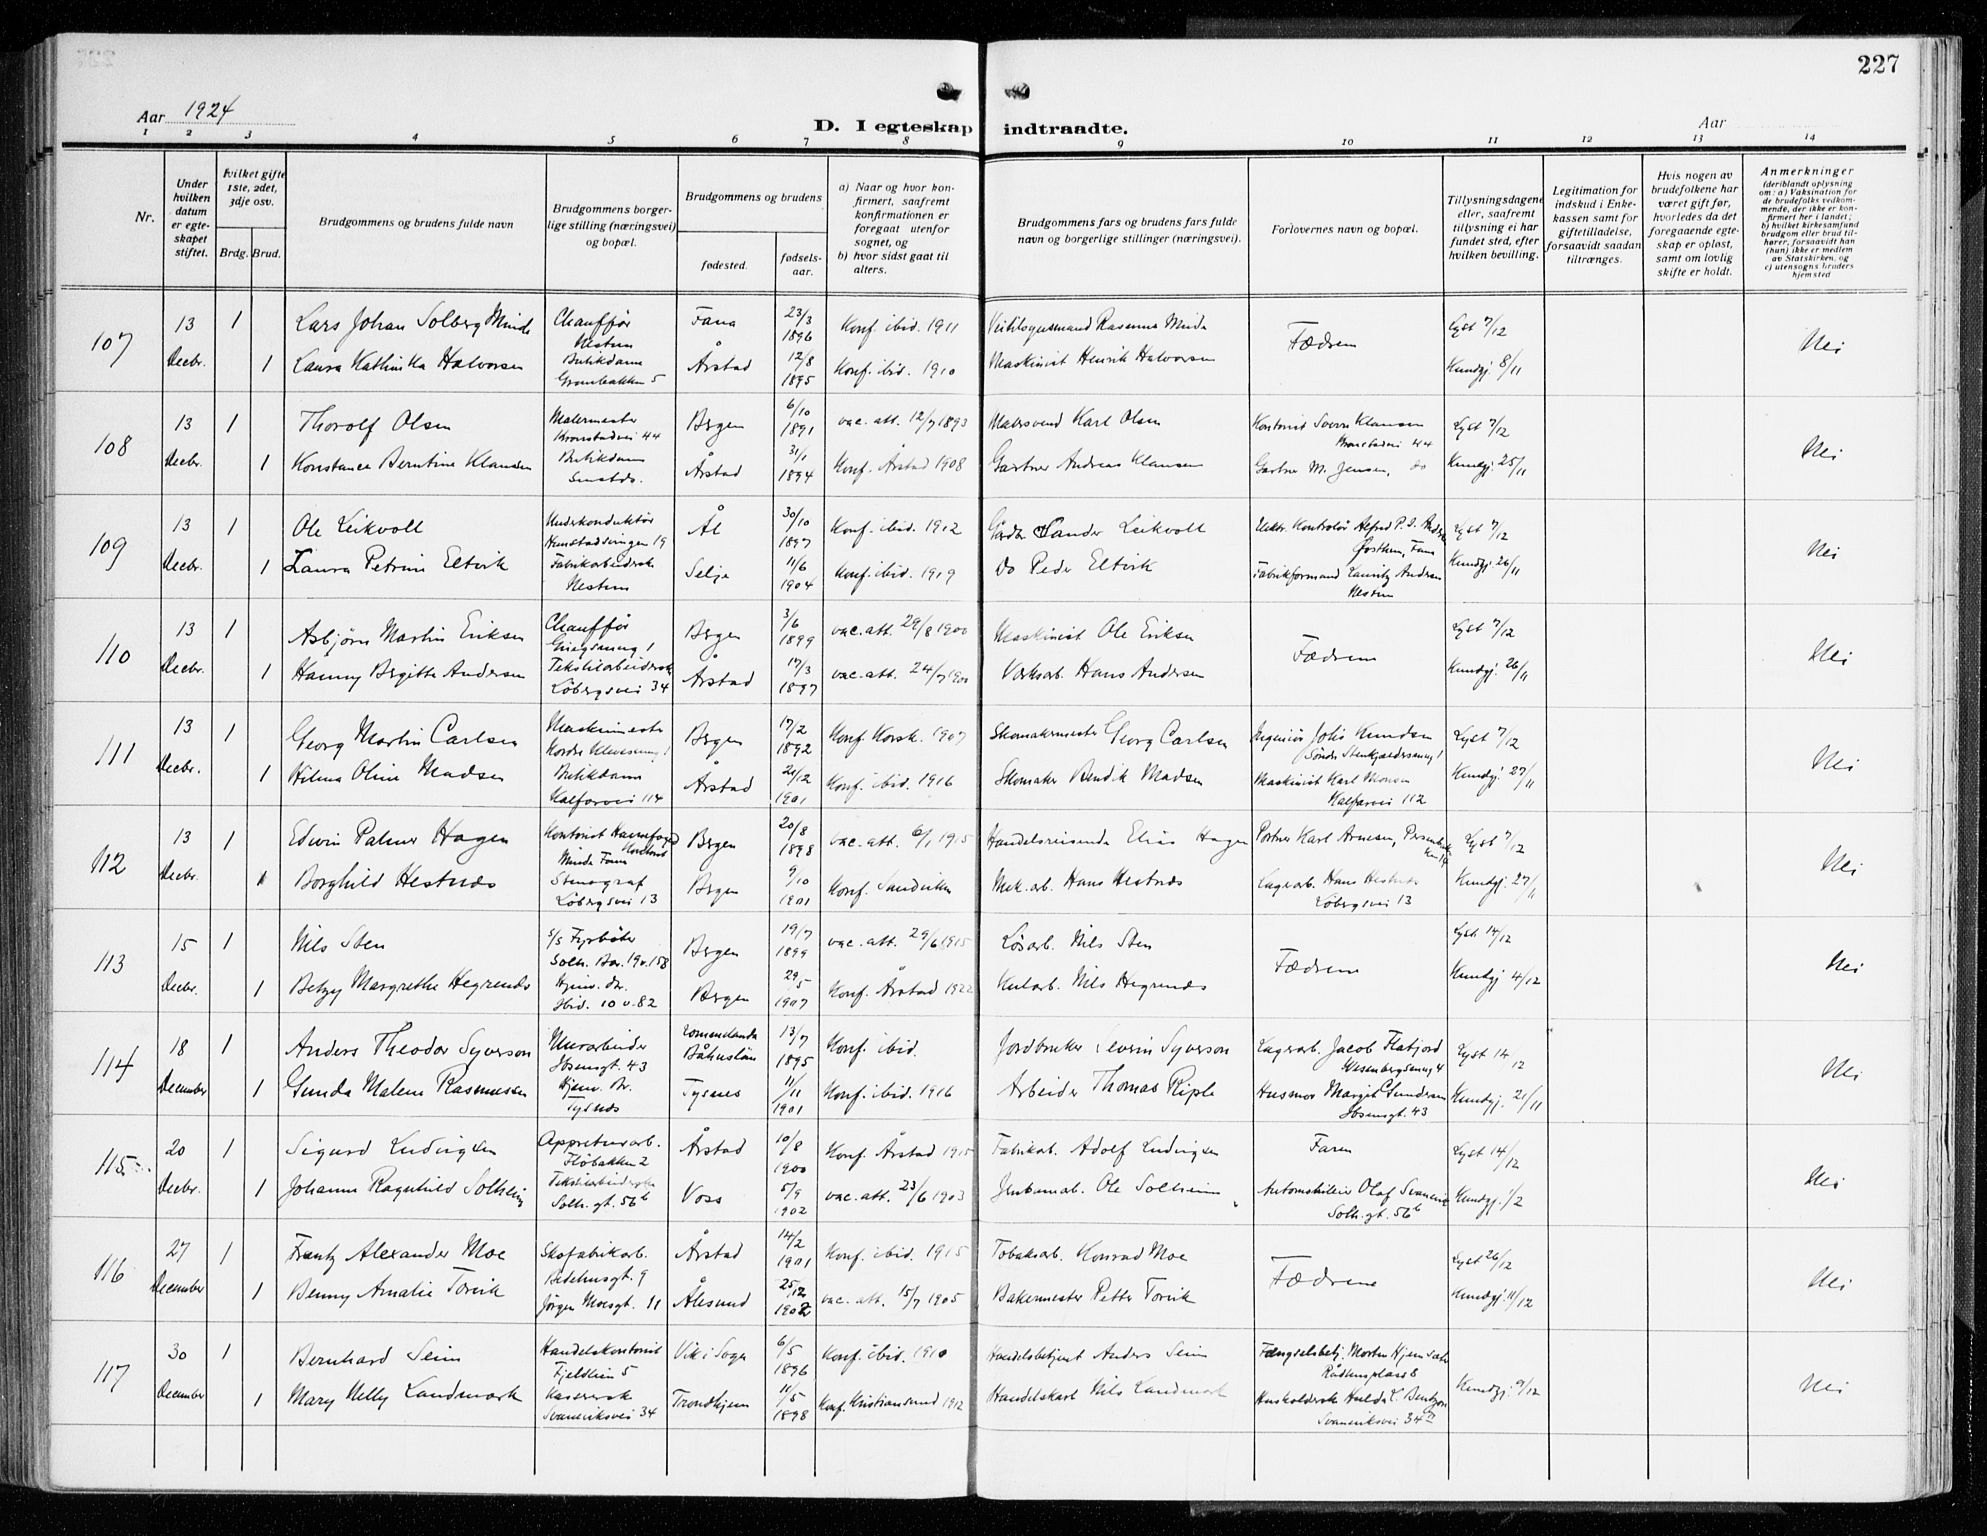 227
Aar 1924
D. I egteskap indtraadte.
Aar
1 2 3 4 5 6 7 8 9 10 11 12 13 14
Nr.
Under hvilken datum er egteskapet stiftet.
Hvilket gifte 1ste, 2det, 3dje osv.
Brdg. Brud.
Brudgommens og brudens fulde navn
Brudgommens borgerlige stilling (næringsvei) og bopæl.
Brudgommens og brudens
fødested.
fødselsaar.
a) Naar og hvor konfirmert, saafremt konfirmationen er foregaat utenfor sognet, og
b) hvor sidst gaat til alters.
Brudgommens fars og brudens fars fulde navn og borgerlige stillinger (næringsvei).
Forlovernes navn og bopæl.
Tillysningsdagene eller, saafremt tillysning ei har fundet sted, efter hvilken bevilling.
Legitimation for indskud i Enkekassen samt for giftetilladelse, forsaavidt saadan tiltrænges.
Hvis nogen av brudefolkene har været gift før, hvorledes da det foregaaende egteskap er opløst, samt om lovlig skifte er holdt.
Anmerkninger
(deriblandt oplysning om: a) Vaksination for de brudefolks vedkommende, der ikke er konfirmert her i landet; b) hvilket kirkesamfund brudgom eller brud tilhører, forsaavidt han (hun) ikke er medlem av Statskirken, og c) utensogns bruders hjemsted
107 13 Decbr. 1 Lars Johan Solberg Minde Chauffør Nestun Fana 23/3 1896 Konf. ibid. 1911 Rasmus Minde Fædrene Lyst 7/12 Nei
1 Laura Kathinka Halvorsen Butikdame 5 Årstad 12/8 1895 Konf. ibid. 1910 Maskinist Henrik Halvorsen Kundgj. 8/11
108 13 Decbr. 1 Thorolf Olsen Malermester Kronstadvei 44 Bergen 6/10 1891 vac. att. 12/7 1893 Malersvend Karl Olsen Kontorist Sverre Klausen 44 Lyst 7/12 Nei
1 Konstance Berntine Klausen Butikdame Årstad 31/1 1894 Konf. Årstad 1908 Gartner Andreas Klausen Gartner M. Jensen, do Kundgj. 25/11
109 13 Decbr. 1 Ole Leikvoll Underkonduktør 19 Ål 30/10 1897 Konf. ibid. 1912 Gårdbr. Sander Leikvoll Kontrolør Alfred P. Fana Lyst 7/12 Nei
1 Laura Petrine Eltvik Fabrikarbeiderske Nestun Selje 11/6 1904 Konf. ibid. 1919 Do Peder Eltvik Fabrikformand Lauritz Andersen Nestun Kundgj. 26/11
110 13 Decbr. 1 Asbjørn Martin Eriksen Chauffør 1 Bergen 3/6 1899 vac. att. 29/8 1900 Maskinist Ole Eriksen Fædrene Lyst 7/12 Nei
1 Hanny Bergitte Andersen Tekstilarbeiderske Løbergsvei 34 Årstad 17/3 1897 vac. att. 24/7 1900 Verksarb. Hans Andersen Kundgj. 26/11
111 13 Decbr. 1 Georg Martin Carlsen Maskinmester Bergen 17/2 1892 Konf. Korsk. 1907 Skomakermester Georg Carlsen Ingeniør Johs Knudsen Lyst 7/12 Nei
1 Hilma Oline Madsen Butikdame Kalfarvei 114 Årstad 21/12 1901 Konf. ibid. 1916 Skomaker Bendik Madsen Maskinist Karl Monsen Kalfarvei 112 Kundgj. 27/11
112 13 Decbr. 1 Edvin Palmer Hagen Kontorist Minde Fana Bergen 20/8 1898 vac. att. 6/1 1915 Handelsreisende Elias Hagen Portner Karl Arnesen, Lyst 7/12 Nei
1 Borghild Hestnes Stenograf Løbergsvei 13 Bergen 9/10 1901 Konf. Sandviken Mek. arb. Hans Hestnes Lagerarb. Hans Hestnes Løbergsvei 13 Kundgj. 27/11
113 15 Decbr. 1 Nils Sten S/S Fyrbøter Solh. 19 v. 158 Bergen 19/7 1899 vac. att. 29/6 1915 Løsarb. Nils Sten Fædrene Lyst 14/12 Nei
1 Betzy Margrethe Hegrenes Hjemv. dr. Ibid. 10 v. 82 Bergen 29/5 1907 Konf. Årstad 1922 Kularb. Nils Hegrenes Kundgj. 4/12
114 18 December 1 Anders Theodor Syverson Murarbeider Ibsensgt. 43 Romelanda Båhuslän 13/7 1895 Konf. ibid. Jordbruker Severin Syverson Lagerarb. Jacob Flatjord 4 Lyst 14/12 Nei
1 Gunda Malene Rasmussen Hjemv. dr. Tysnes Tysnes 11/11 1901 Konf. ibid. 1916 Arbeider Thomas Riple Husmor Margit Gundersen Ibsensgt. 43 Kundgj. 21/11
115 20 Decbr. 1 Sigurd Ludvigsen Appreturarb. Fløbakken 2 Årstad 10/8 1900 Konf. Årstad 1915 Fabrikarb. Adolf Ludvigsen Faren Lyst 14/12 Nei
1 Johanne Ragnhild Solheim Tekstilarbeiderske Solh. gt. 56b Voss 5/9 1902 vac. att. 23/6 1903 Jernbanearb. Ole Solheim Olaf Solh. gt. 56b Kundgj. 1/2
116 27 December 1 Frantz Alexander Moe Skofabrikarb. Bedehusgt. 9 Årstad 14/2 1901 Konf. ibid. 1915 Tobaksarb. Konrad Moe Fædrene Lyst 26/12 Nei
1 Benny Amalie Torvik Jørgen Moesgt. 11 Ålesund 25/12 1902 vac. att. 15/7 1905 Bakermester Petter Torvik Kundgj. 11/12
117 30 December 1 Bernhard Seim Handelskontorist Fjeldlien 5 Vik i Sogn 6/5 1896 Konf. ibid. 1910 Handelsbetjent Anders Seim Fængselsbetj. Morten Rådhusplass 8 Kundgj. 9/12 Nei
1 Mary Nelly Landmark Kassererske Svaneviksvei 34 Trondhjem 11/5 1898 Konf. Kristiansund 1912 Handelskar Nils Landmark Husholderske Hulda L. Bentzon Svaneviksvei 34